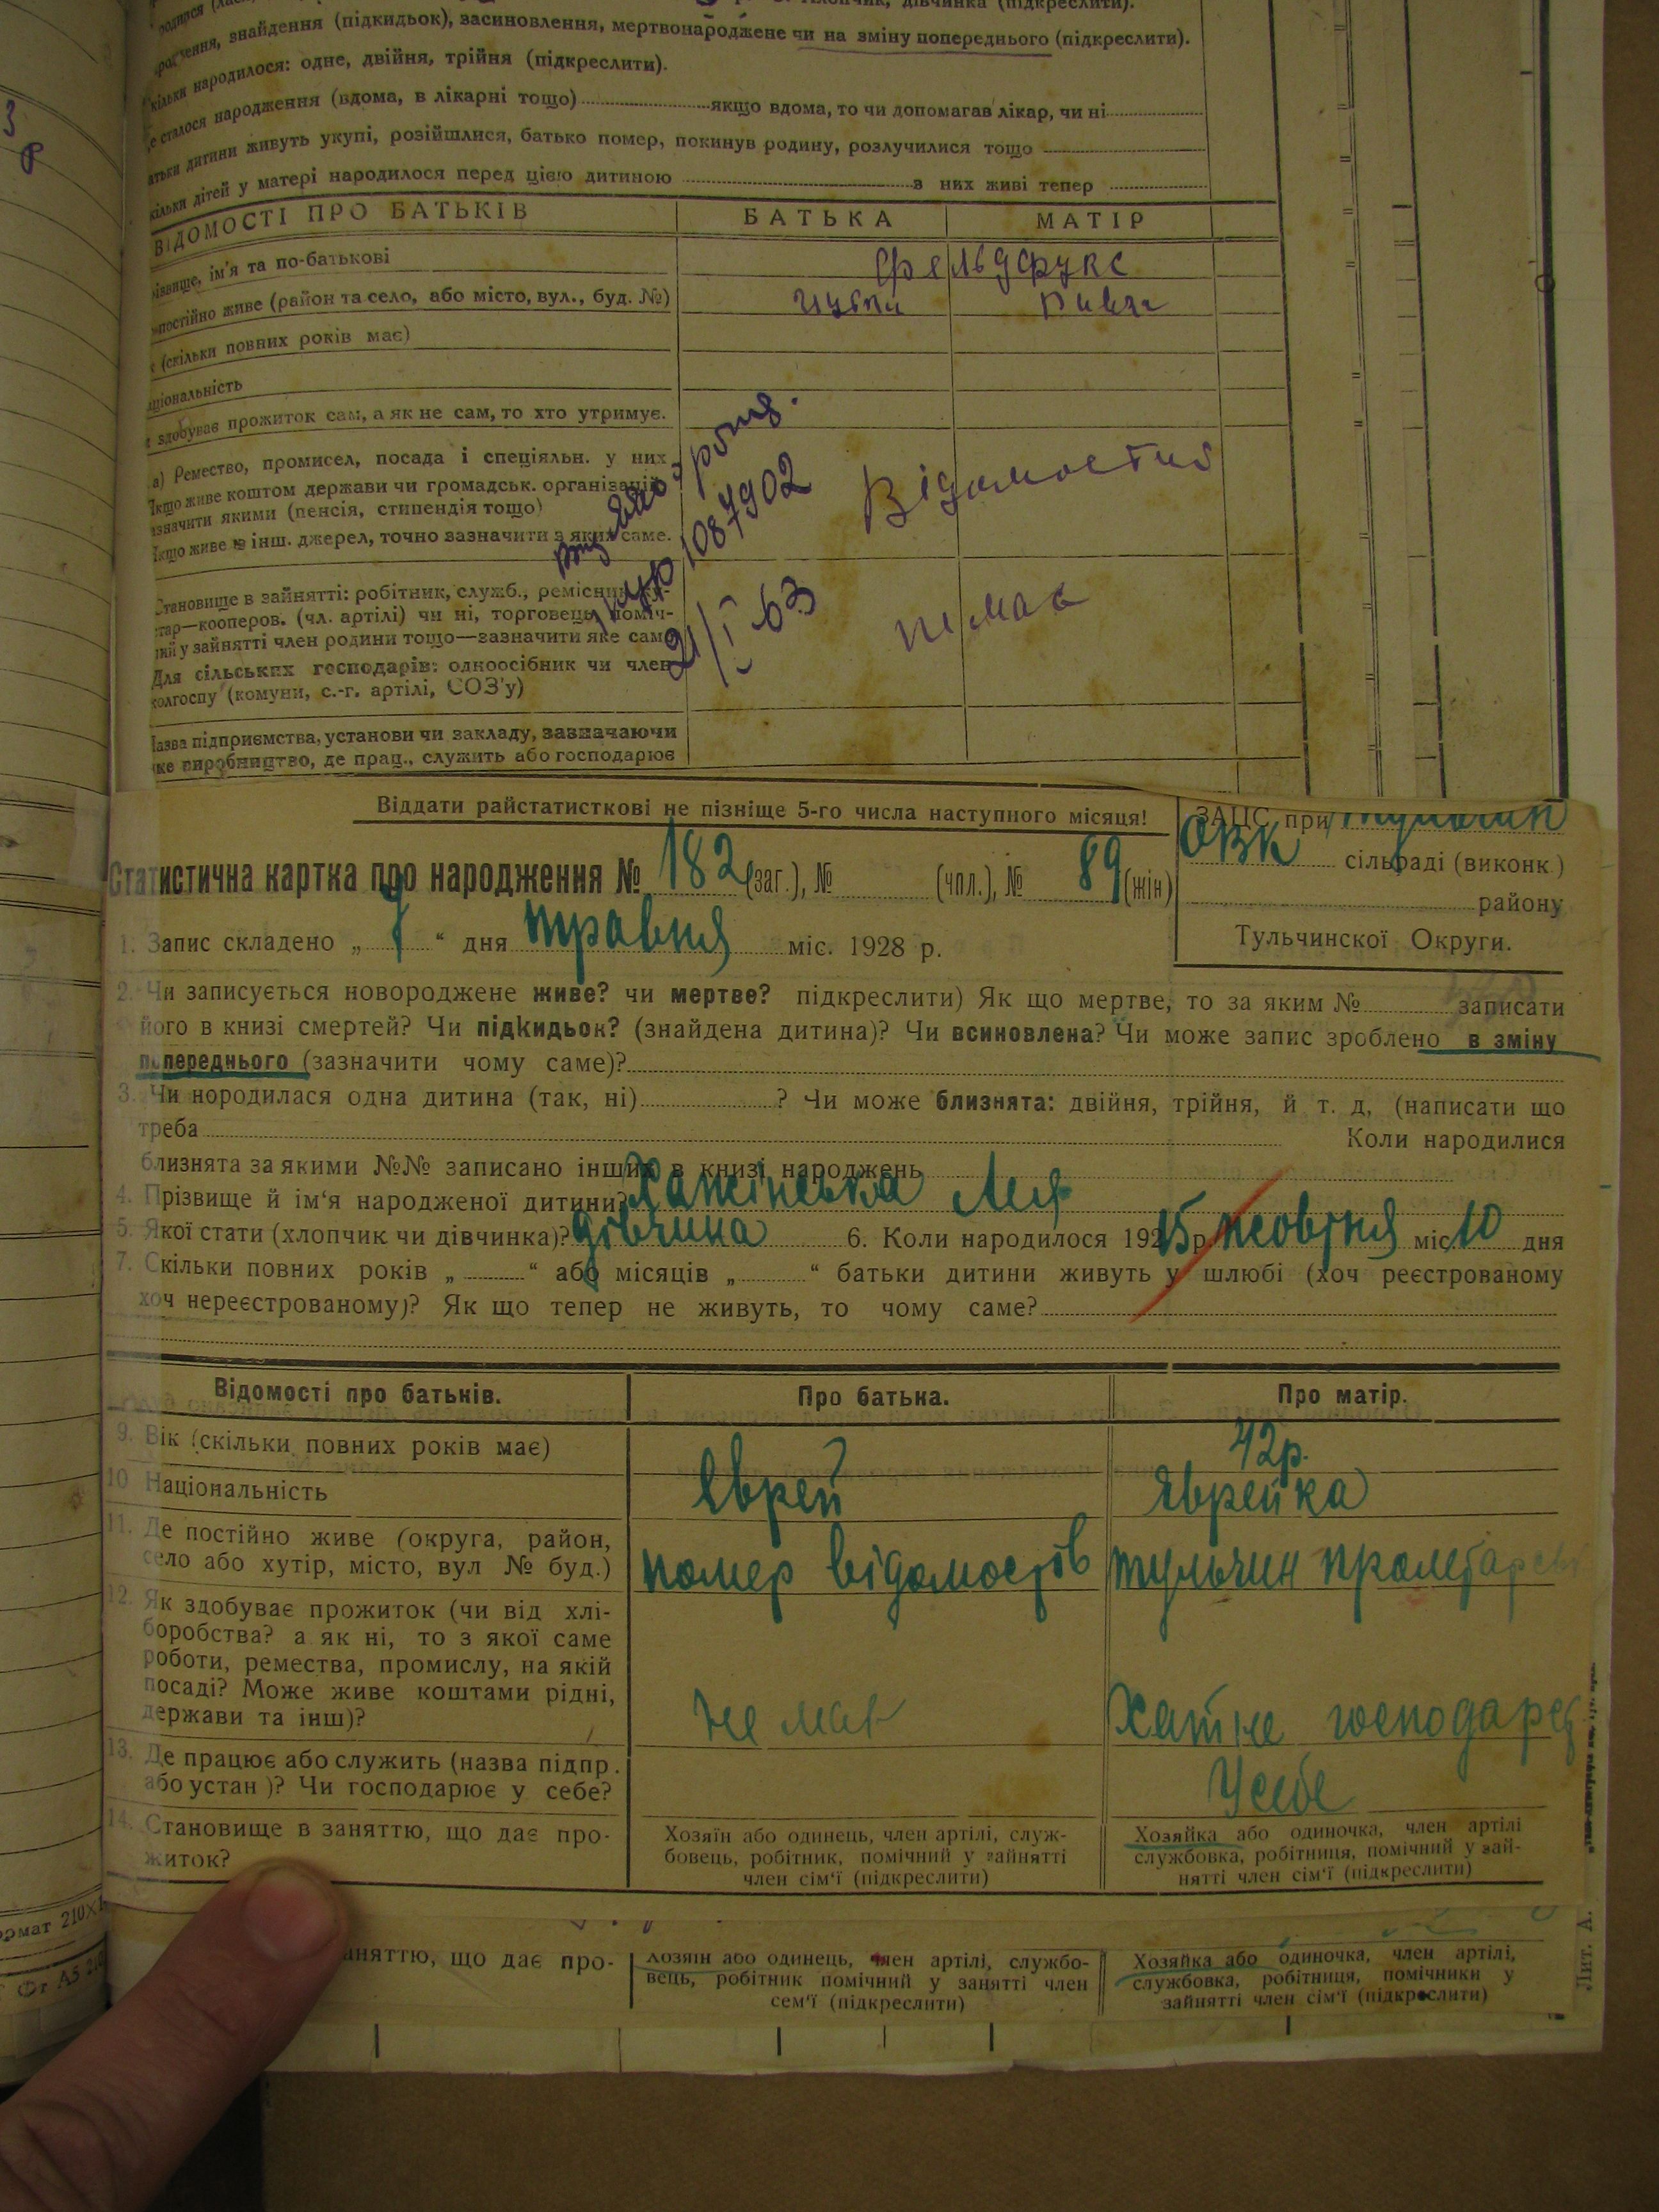 хлопчик, дівчинка (підкреслити).
знайдення (підкидьок), засиновлення, мертвонароджене чи на зміну попереднього (підкреслити).
народилося: одне, двійня, трійня (підкреслити).
сталося народження (вдома, в лікарні тощо) якщо вдома, то чи допомагав лікар, чи ні
дитини живуть укупі, розійшлися, батько помер, покинув родину, розлучилися тощо
дітей у матері народилося перед цією дитиною з них живі тепер
ВІДОМОСТІ ПРО БАТЬКІВ БАТЬКА МАТІР
ім'я та по-батькові Фельдфукс
постійно живе (район та село, або місто, вул., буд. №)
(скільки повних років має)
здобуває прожиток сам, а як не сам, то хто утримує.
а) Ремество, промисел, посада і спеціяльн. у них
Якщо живе коштом держави чи громадськ. організацій
зазначити якими (пенсія, стипендія тощо)
Якщо живе з інш. джерел, точно зазначити з яких саме.
1087902
Відомостів
21/I-63
немає
Становище в зайнятті: робітник, служб., ремісник
кооперов. (чл. артілі) чи ні, торговець, поміч-
ний у зайнятті член родини тощо—зазначити яке саме
Для сільських господарів: одноосібник чи член
колгоспу (комуни, с.-г. артілі, СОЗ'у)
Назва підприємства, установи чи закладу, зазначаючи
яке виробництво, де прац., служить або господарює
Віддати райстатисткові не пізніще 5-го числа наступного місяця!
ЗАЦС при Тульчин
ОВК сільраді (виконк.)
району
Тульчинскої Округи.
Статистична картка про народження № 182 (заг.), № (чпл.), № 89 (жін)
1. Запис складено „ 7 “ дня травня міс. 1928 р.
2. Чи записується новороджене живе? чи мертве? підкреслити) Як що мертве, то за яким № записати
його в книзі смертей? Чи підкидьок? (знайдена дитина)? Чи всиновлена? Чи може запис зроблено в зміну
попереднього (зазначити чому саме)?
3. Чи нородилася одна дитина (так, ні) ? Чи може близнята: двійня, трійня, й т. д, (написати що
треба Коли народилися
близнята за якими №№ записано інших в книзі народжень
4. Прізвище й ім'я народженої дитини? Лея
5. Якої стати (хлопчик чи дівчинка)? дівчина 6. Коли народилося 1925 р. жовтня міс 10 дня
7. Скільки повних років „ “ або місяців „ “ батьки дитини живуть у шлюбі (хоч реєстрованому
хоч нереєстрованому)? Як що тепер не живуть, то чому саме?
Відомості про батьків. Про батька. Про матір.
9. Вік (скільки повних років має) 42р.
10 Національність Єврей Єврейка
11. Де постійно живе (округа, район,
село або хутір, місто, вул № буд.) помер відомостів тульчин
12. Як здобуває прожиток (чи від хлі-
боробства? а як ні, то з якої саме
роботи, ремества, промислу, на якій
посаді? Може живе коштами рідні,
держави та інш)? не має Хатне господарс
13. Де працює або служить (назва підпр.
або устан )? Чи господарює у себе? У себе
14. Становище в заняттю, що дає про-
житок?
Хозяїн або одинець, член артілі, служ-
бовець, робітник, помічний у зайнятті
член сім'ї (підкреслити)
Хозяйка або одиночка, член артілі
службовка, робітниця, помічний у зай-
нятті член сім'ї (підкреслити)
заняттю, що дає про-
Хозяїн або одинець, член артілі, службо-
вець, робітник помічний у занятті член
сем'ї (підкреслити)
Хозяйка або одиночка, член артілі,
службовка, робітниця, помічники у
зайнятті член сім'ї (підкреслити)
Лит. А.